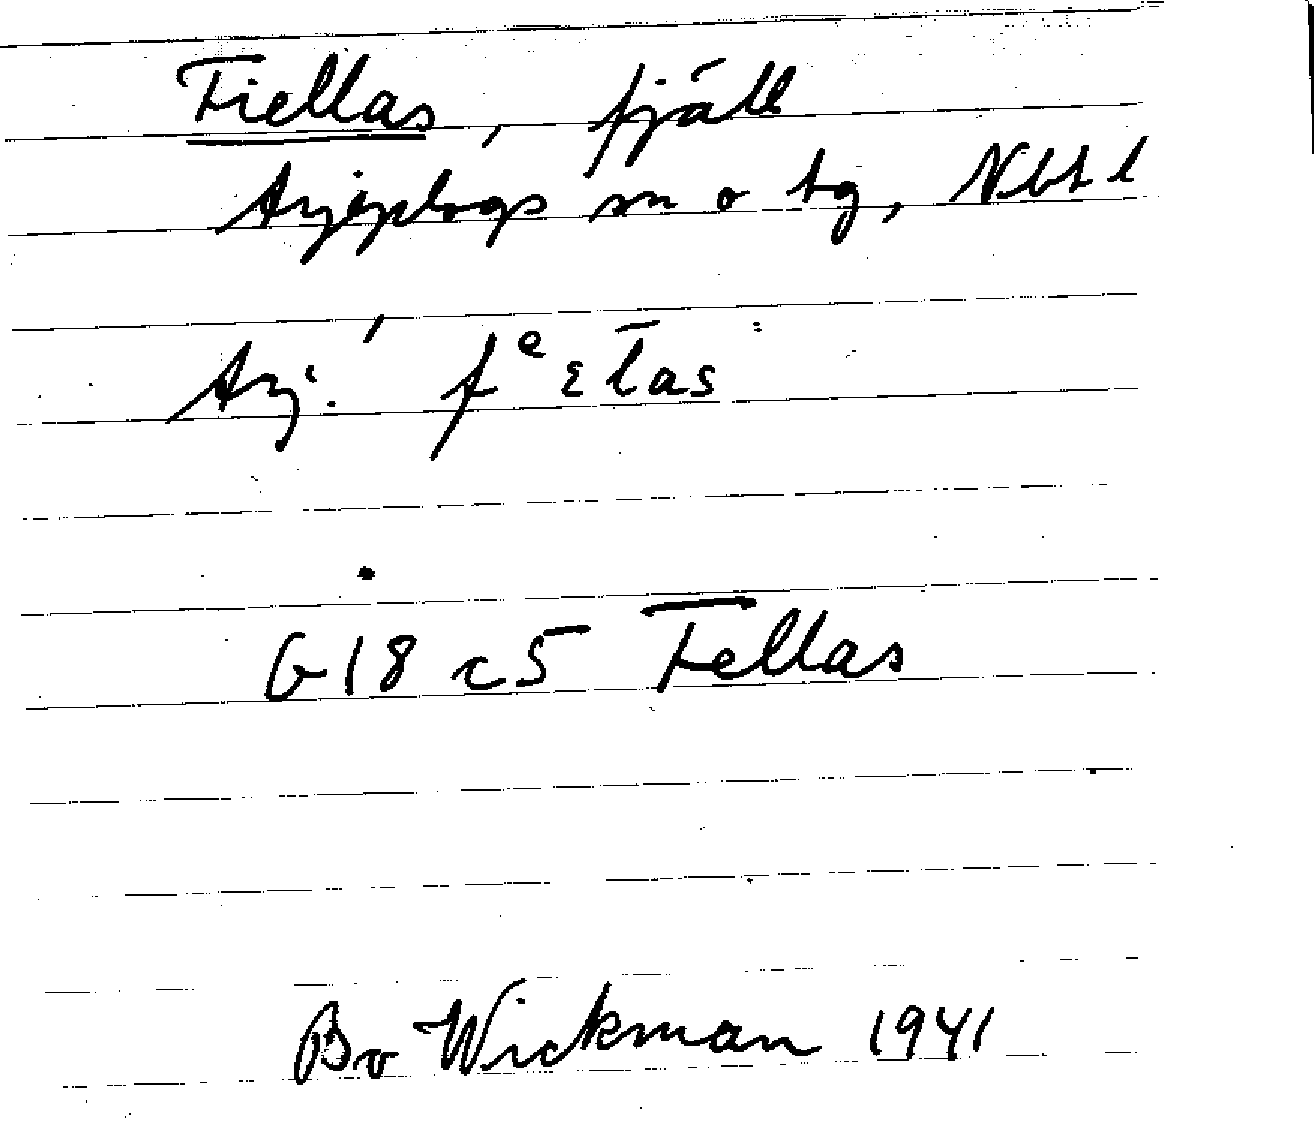 Fiellas, fjäll
Arjeplogs sn o tg, Nbt l
Arj. fᵉɛl̄as
G18 c5 Fellas
Bo Wickman 1941